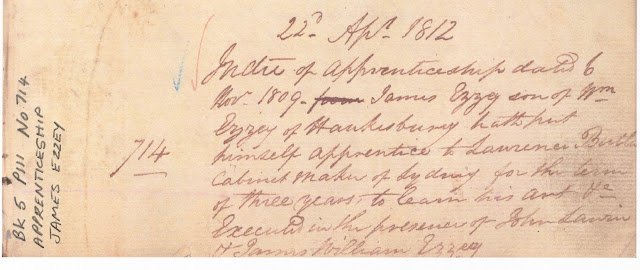 22d. Apr. 1812
Indre of apprenticeship dated 6
Nov. 1809. from James Ezzey son of Wm
Ezzey of Hawkesbury hath put
714
himself apprentice to Lawrence Butler
Cabinet Maker of Sydney for the term
of three years to learn his art &c
Executed in the presence of John Lawin
& James William Ezzey
BK 5 P111 No 714
APPRENTICESHIP
JAMES EZZEY